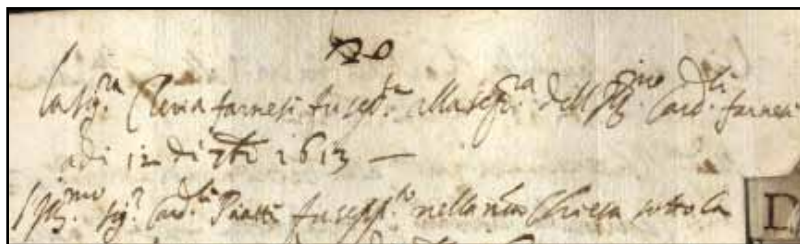 la sig.ra Cleria farnesi fu sep.ta alla sep.ra dell Ill.mo Card.li farnesi
adi 12 di 7bre 1613 —
Ill.mo sig.r Card.li Piatti fu sepp.to nella nra Chiesa sotto la
D